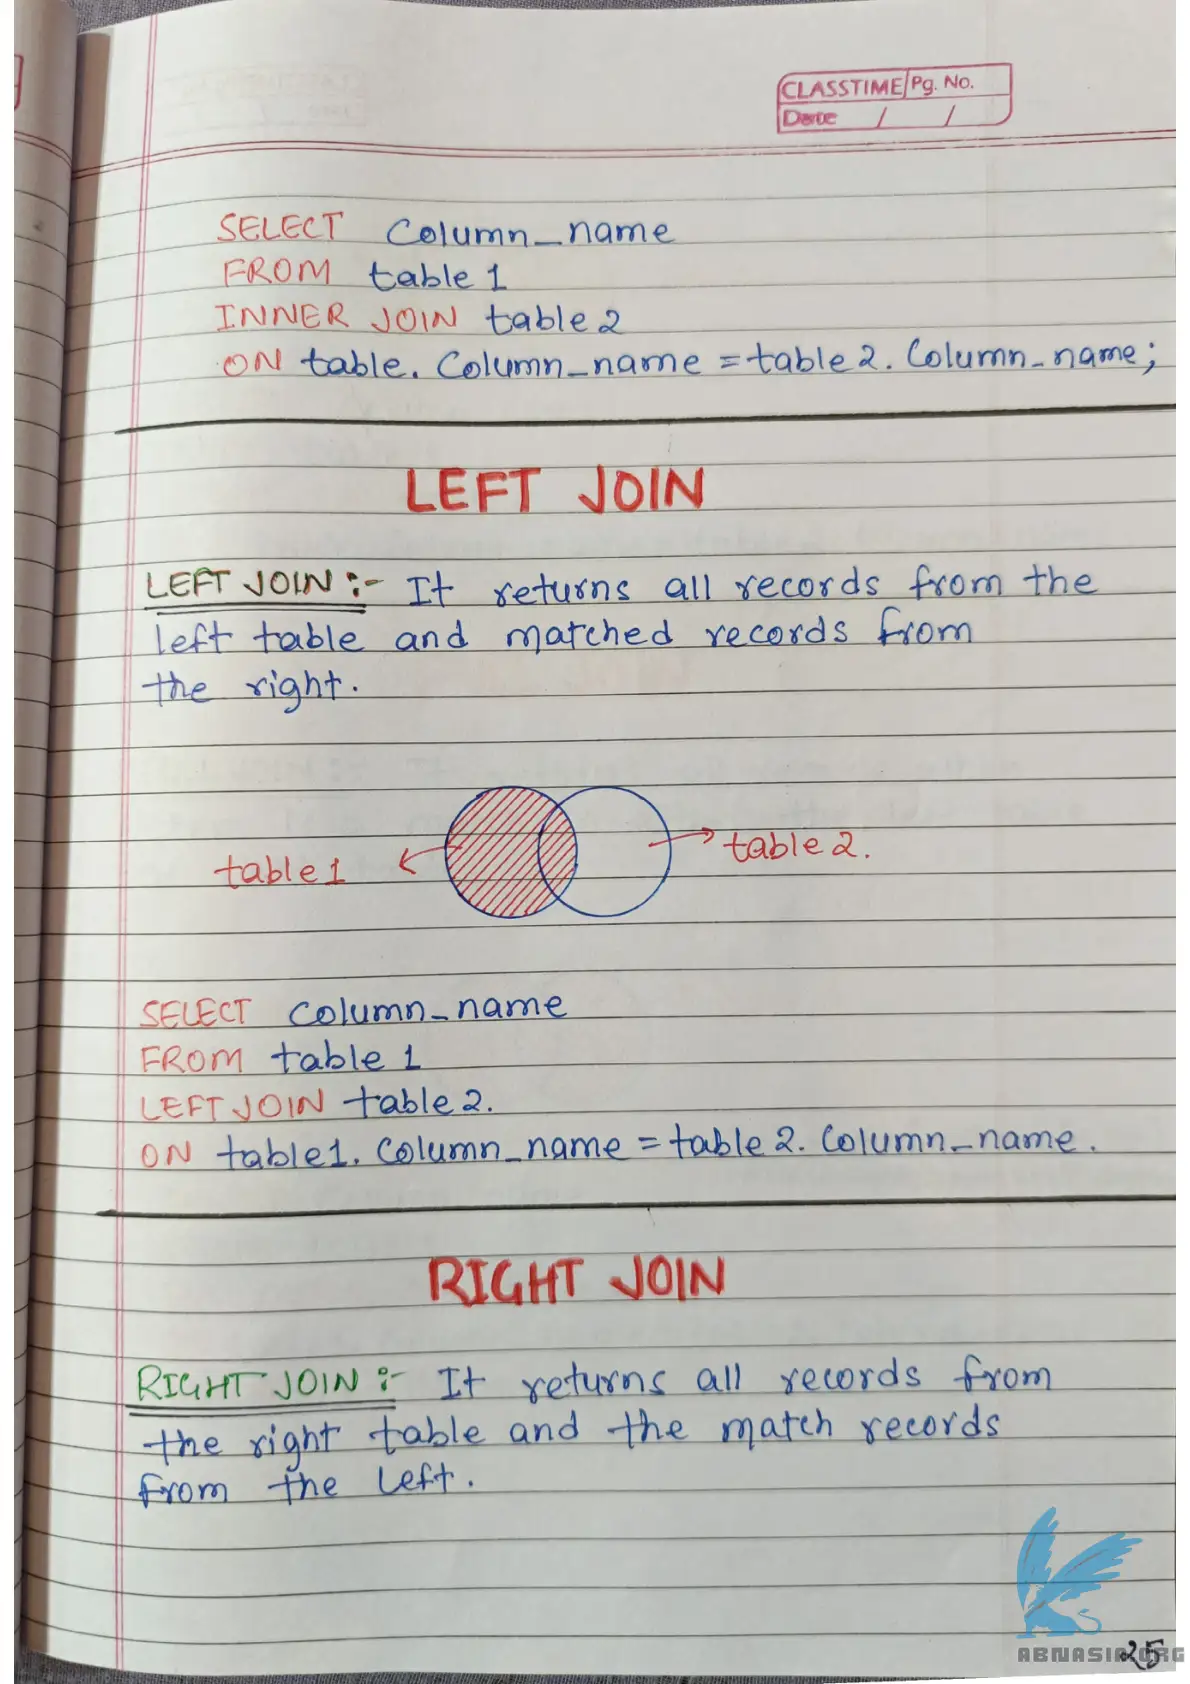 CLASSTIME Pg. No.
Date / /
SELECT Column_name
FROM table 1
INNER JOIN table 2
ON table. Column_name = table 2. Column_name;
LEFT JOIN
LEFT JOIN :- It returns all records from the
left table and matched records from
the right.
table 1
table 2.
SELECT Column_name
FROM table 1
LEFT JOIN table 2.
ON table1. Column_name = table 2. Column_name.
RIGHT JOIN
RIGHT JOIN :- It returns all records from
the right table and the match records
from the left.
ABNASIA.ORG
25